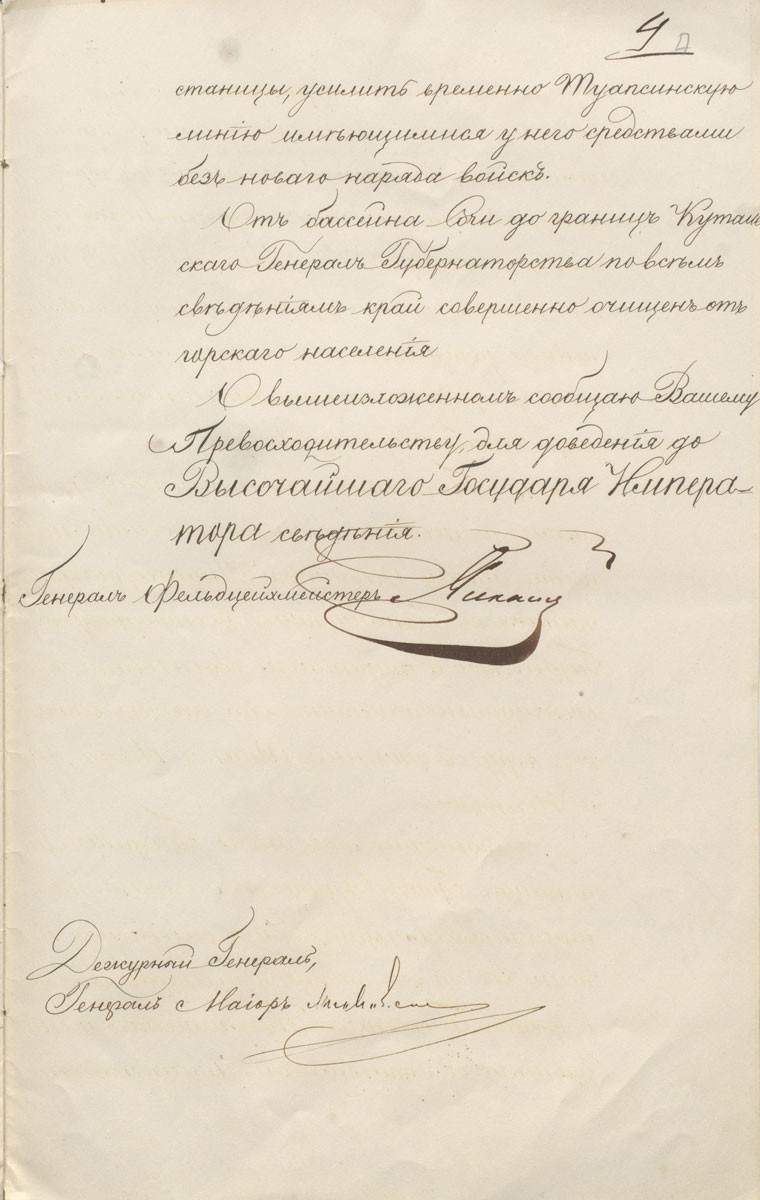 4
станицы, усилить временно Туапсинскую
линію имѣющимися у него средствами
безъ новаго наряда войскъ.
Отъ бассейна Сочи до границъ Кутаис
скаго Генералъ Губернаторства по всѣмъ
свѣдѣніямъ край совершенно очищенъ отъ
горскаго населенія
О вышеизложенномъ сообщаю Вашему
Превосходительству, для доведенія до
Высочайшаго Государя Импера-
тора свѣдѣнія.
Генералъ Фельдцейхмейстеръ Михаилъ
Дежурный Генералъ,
Генералъ Маіоръ